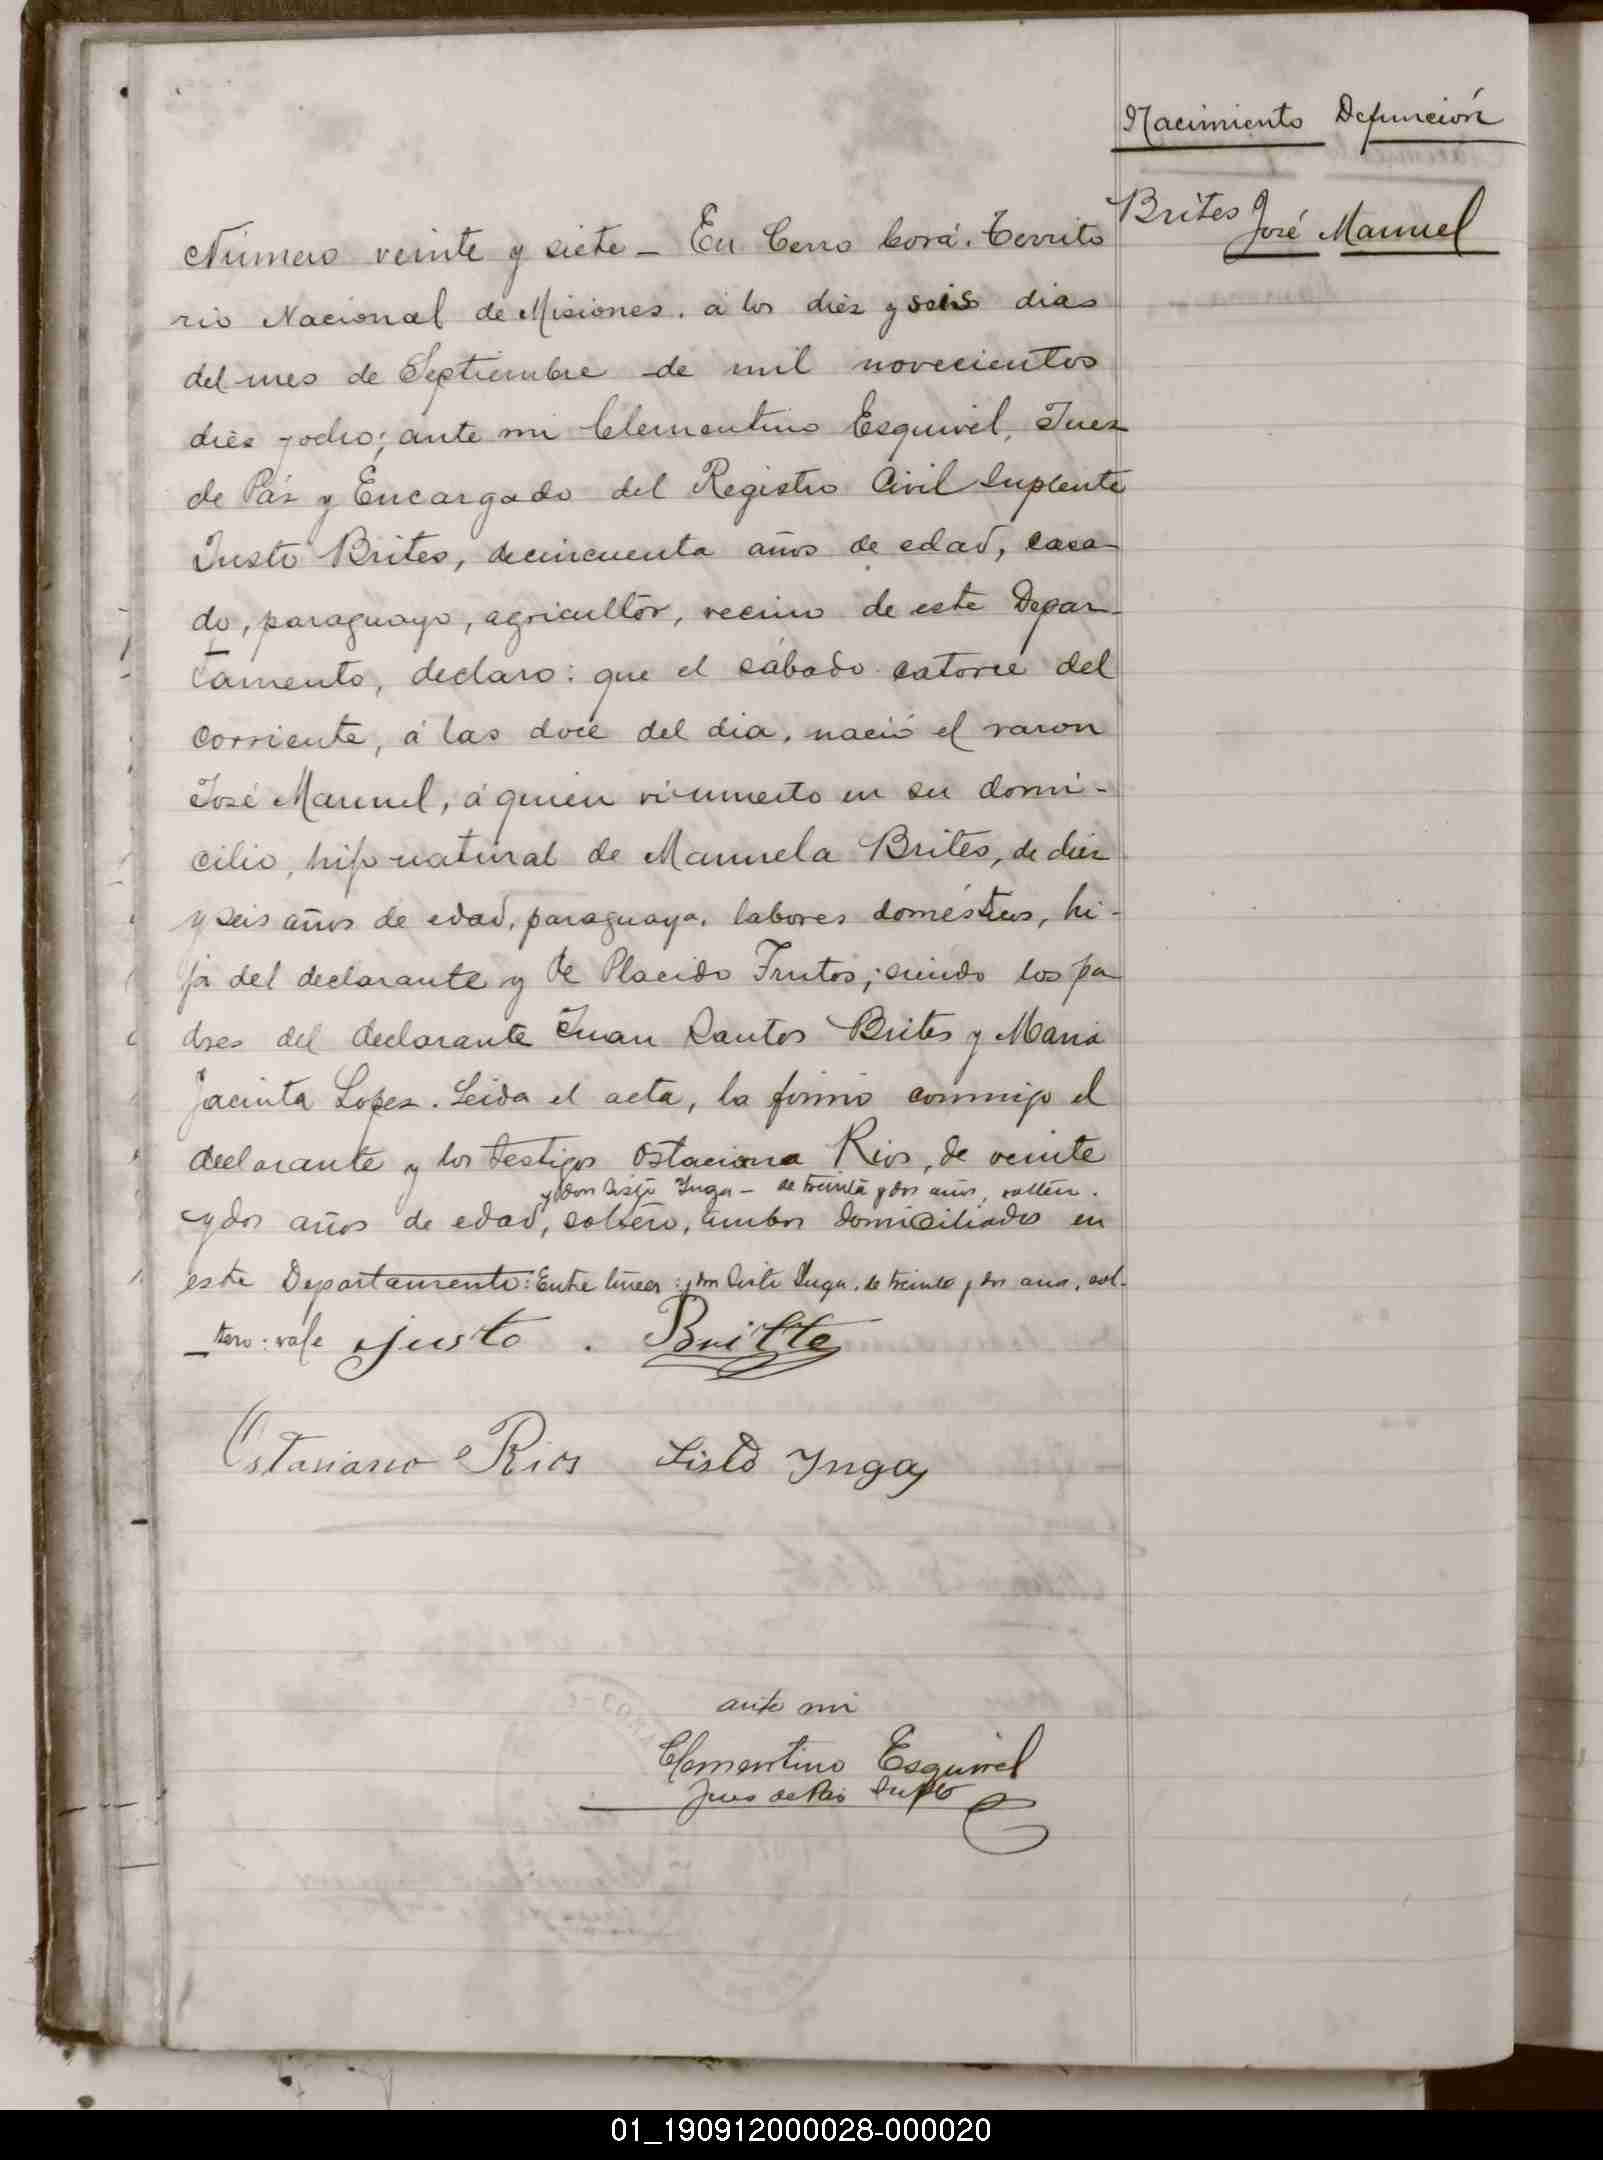 Nacimiento Defunción
Brites José Manuel
Número veinte y siete - En Cerro Corá. Territo
rio Nacional de Misiones. á los diéz y seis dias
del mes de Septiembre de mil novecientos
diés y ocho; ante mi Clementino Esquivel, Juez
de Páz y Encargado del Registro Civil Suplente
Justo Brites, de cincuenta años de edad, casa-
do, paraguayo, agricultór, vecino de este Depar-
tamento, declaro: que el sábado catorce del
corriente, á las doce del dia, nació el varon
José Manuel, á quien vi muerto en su domi-
cilio, hijo natural de Manuela Brites, de diez
y seis años de edad, paraguaya, labores domésticos, hi-
ja del declarante y de Placido Frutos; siendo los pa
dres del declarante Juan Santos Brites y Maria
Jacinta Lopez. Leida el acta, la firmó conmigo el
declarante y los testigos Ostaciano Rios, de veinte
y don Sisto Ynga - de treinta y dos años, soltero.
y dos años de edad, soltero, ambos domiciliados en
este Departamento: Entre lineas: y don Sisto Ynga, de treinta y dos años, sol-
tero: vale Justo. Britte
Ostasiano Rios Sisto Ynga
ante mi
Clementino Esquivel
Jues de Pas Suplte
01_190912000028-000020